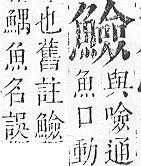 䲓
與噞通
魚口動
也舊註䲓
鰅魚名誤